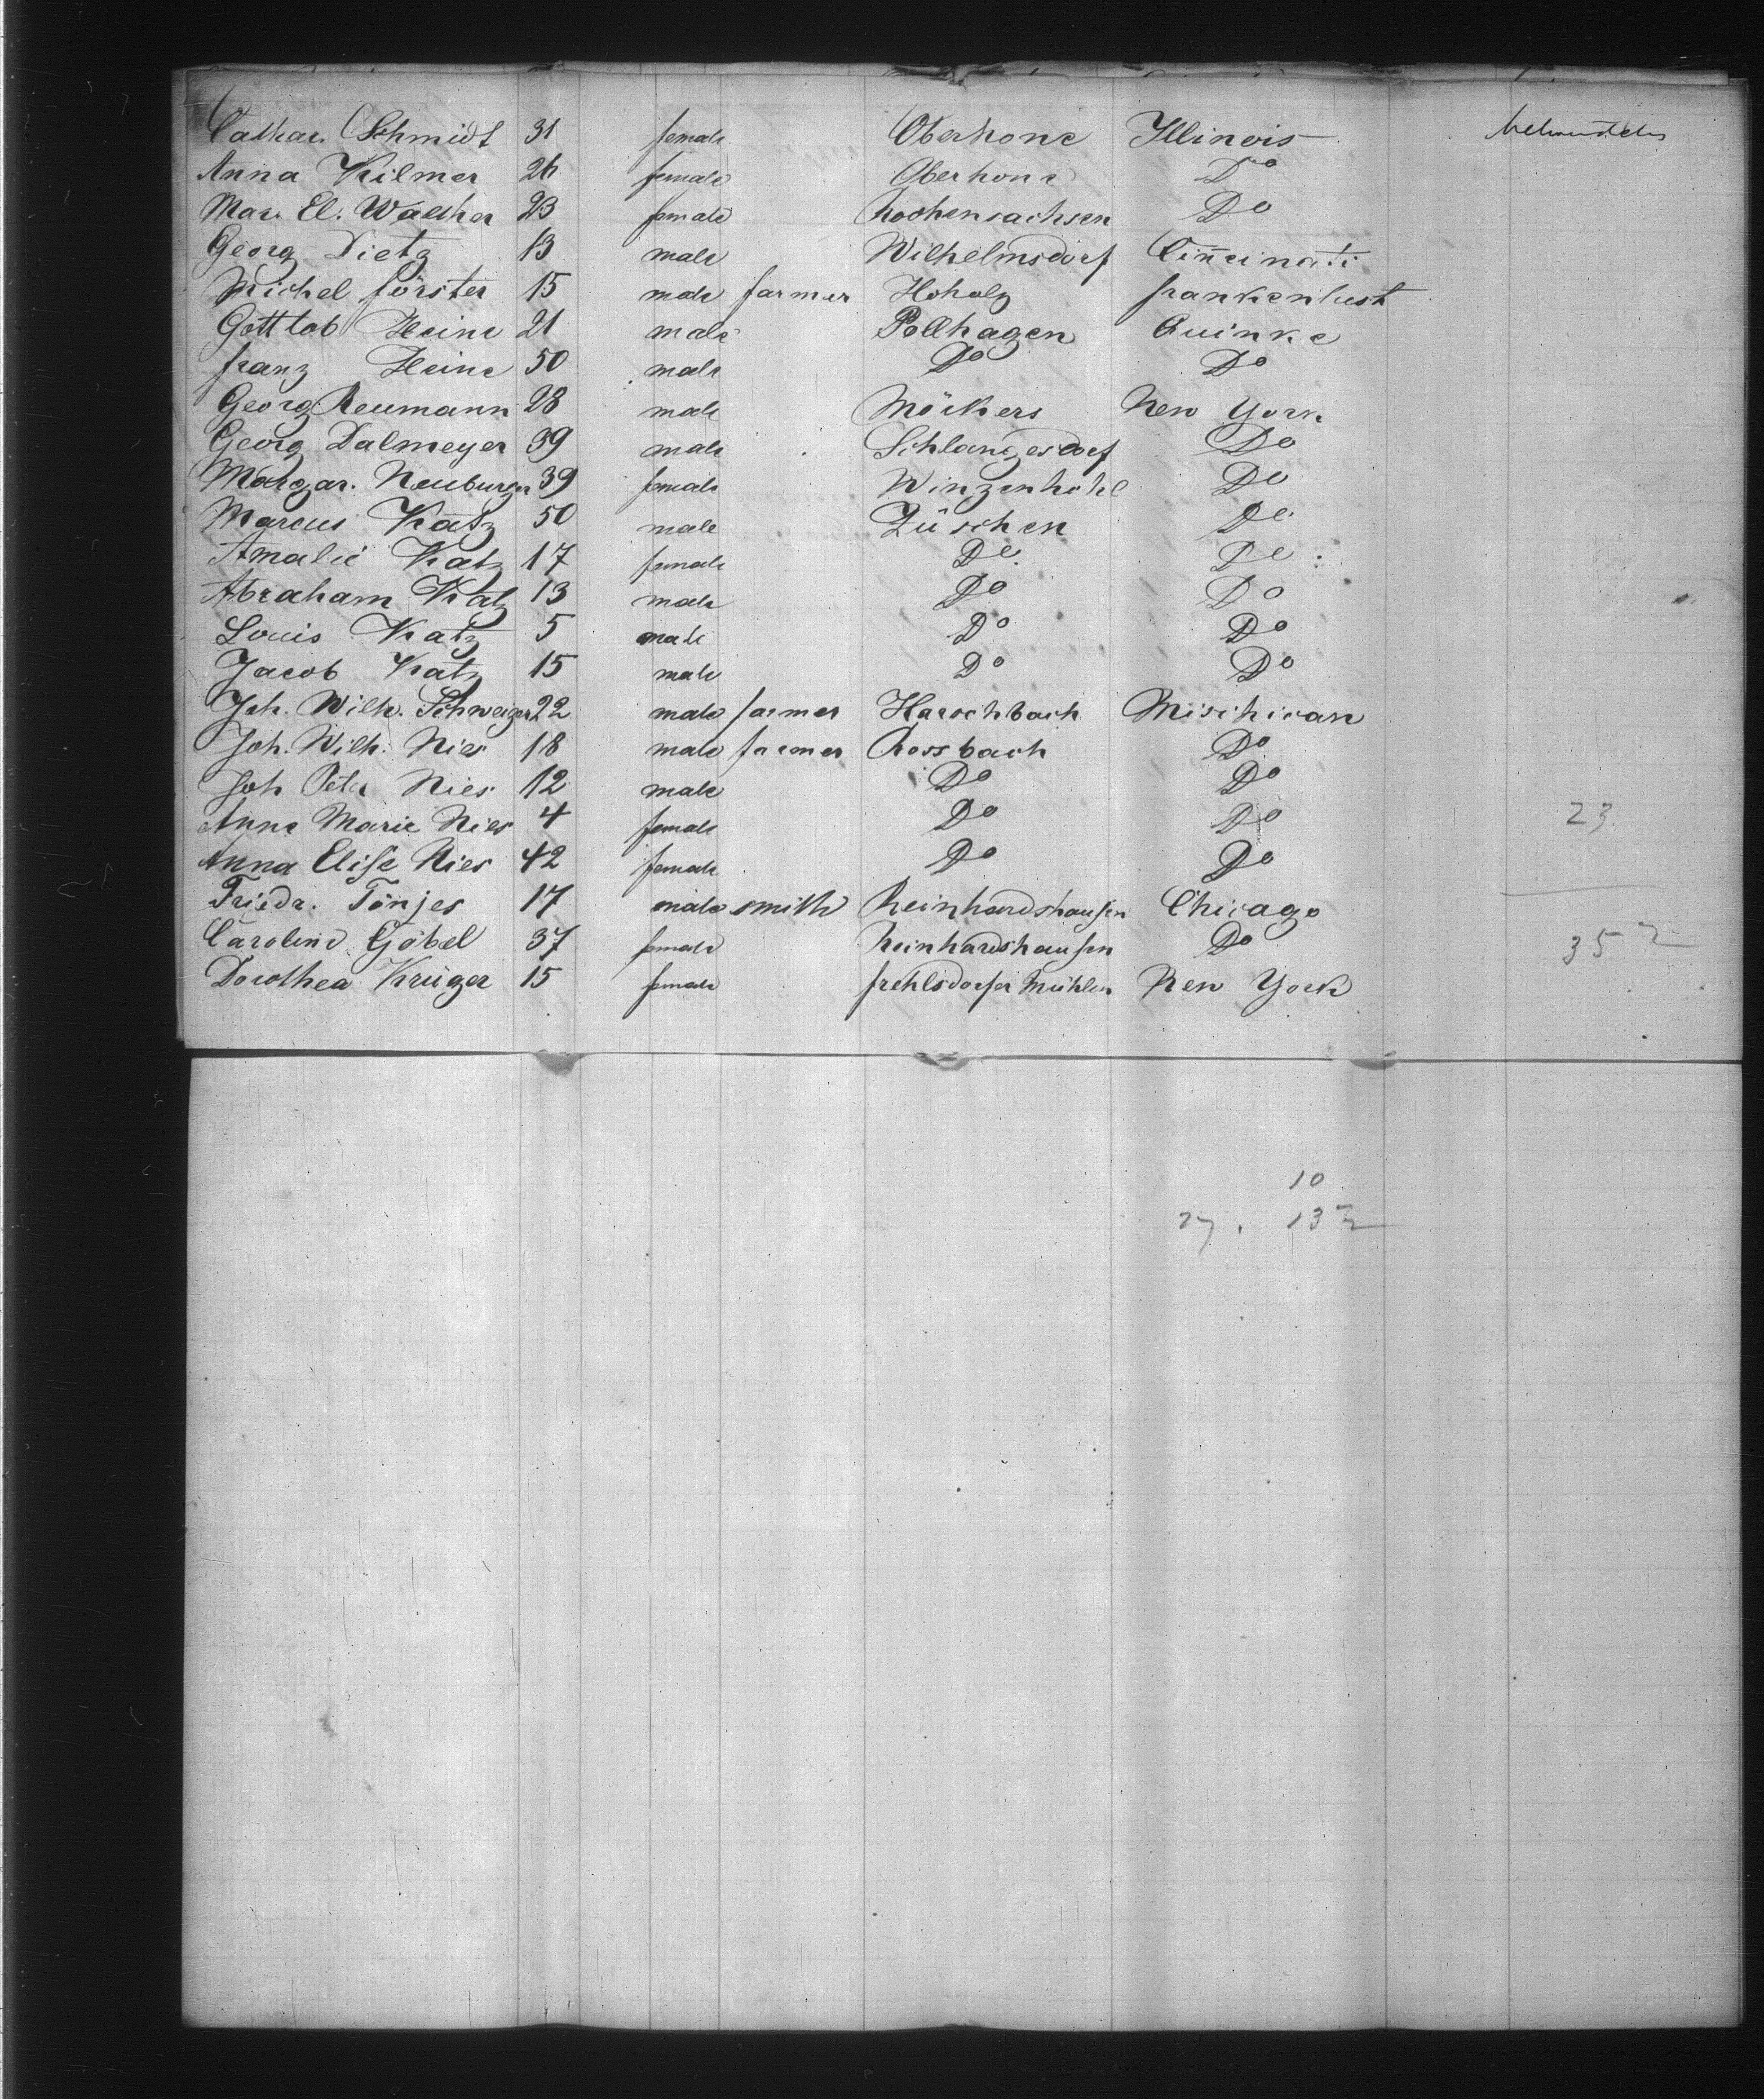 Cathar. Schmidt 31 female Oberhone Illinois
Anna Kilmer 26 female Oberhone Do
Mar. El. Walther 23 female Rochensachsen Do
Georg Dietz 13 male Wilhelmsdorf Cincinati
Michel Förster 15 male farmer Hoholz Frankenlust
Gottlob Heine 21 male Pollhagen Quinke
Franz Heine 50 male Do Do
Georg Reumann 28 male Möckers New York
Georg Dalmeyer 39 male Schlangesdorf Do
Margar. Neuburger 39 female Winzenhohl Do
Marcus Katz 50 male Züschen Do
Amalie Katz 17 female Do Do
Abraham Katz 13 male Do Do
Louis Katz 5 male Do Do
Jacob Katz 15 male Do Do
Joh. Wilh. Schweizer 22 male farmer Harschbach Mischican
Joh. Wilh. Nies 18 male farmer Rossbach Do
Joh Peter Nies 12 male Do Do
Anne Marie Nies 4 female Do Do
23
Anna Elise Nies 42 female Do Do
Friedr. Tönjes 17 male smith Reinhardshausen Chicago
Caroline Göbel 37 female Reinhardshausen Do
35 2
Dorothea Krüger 15 female Frehlsdorfer Mühlen New York
10
27. 132